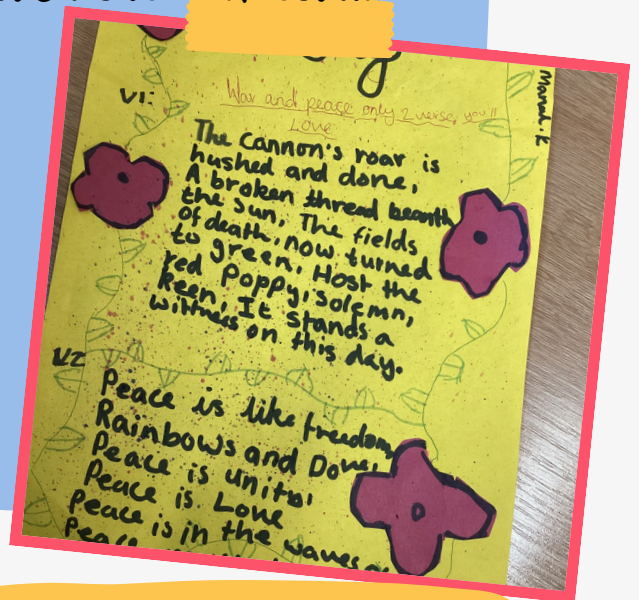 Manal.K
V1:
War and peace only 2 verse, you'll
Love
The Cannon's roar is
hushed and done,
A broken thread beanth
the sun, The fields
of death, now turned
to green, Host the
red Poppy, solemn,
keen, It stands a
wittness on this day.
V2
Peace is like freedom,
Rainbows and Dove,
Peace is unity
Peace is Love
Peace is in the waves
Peace